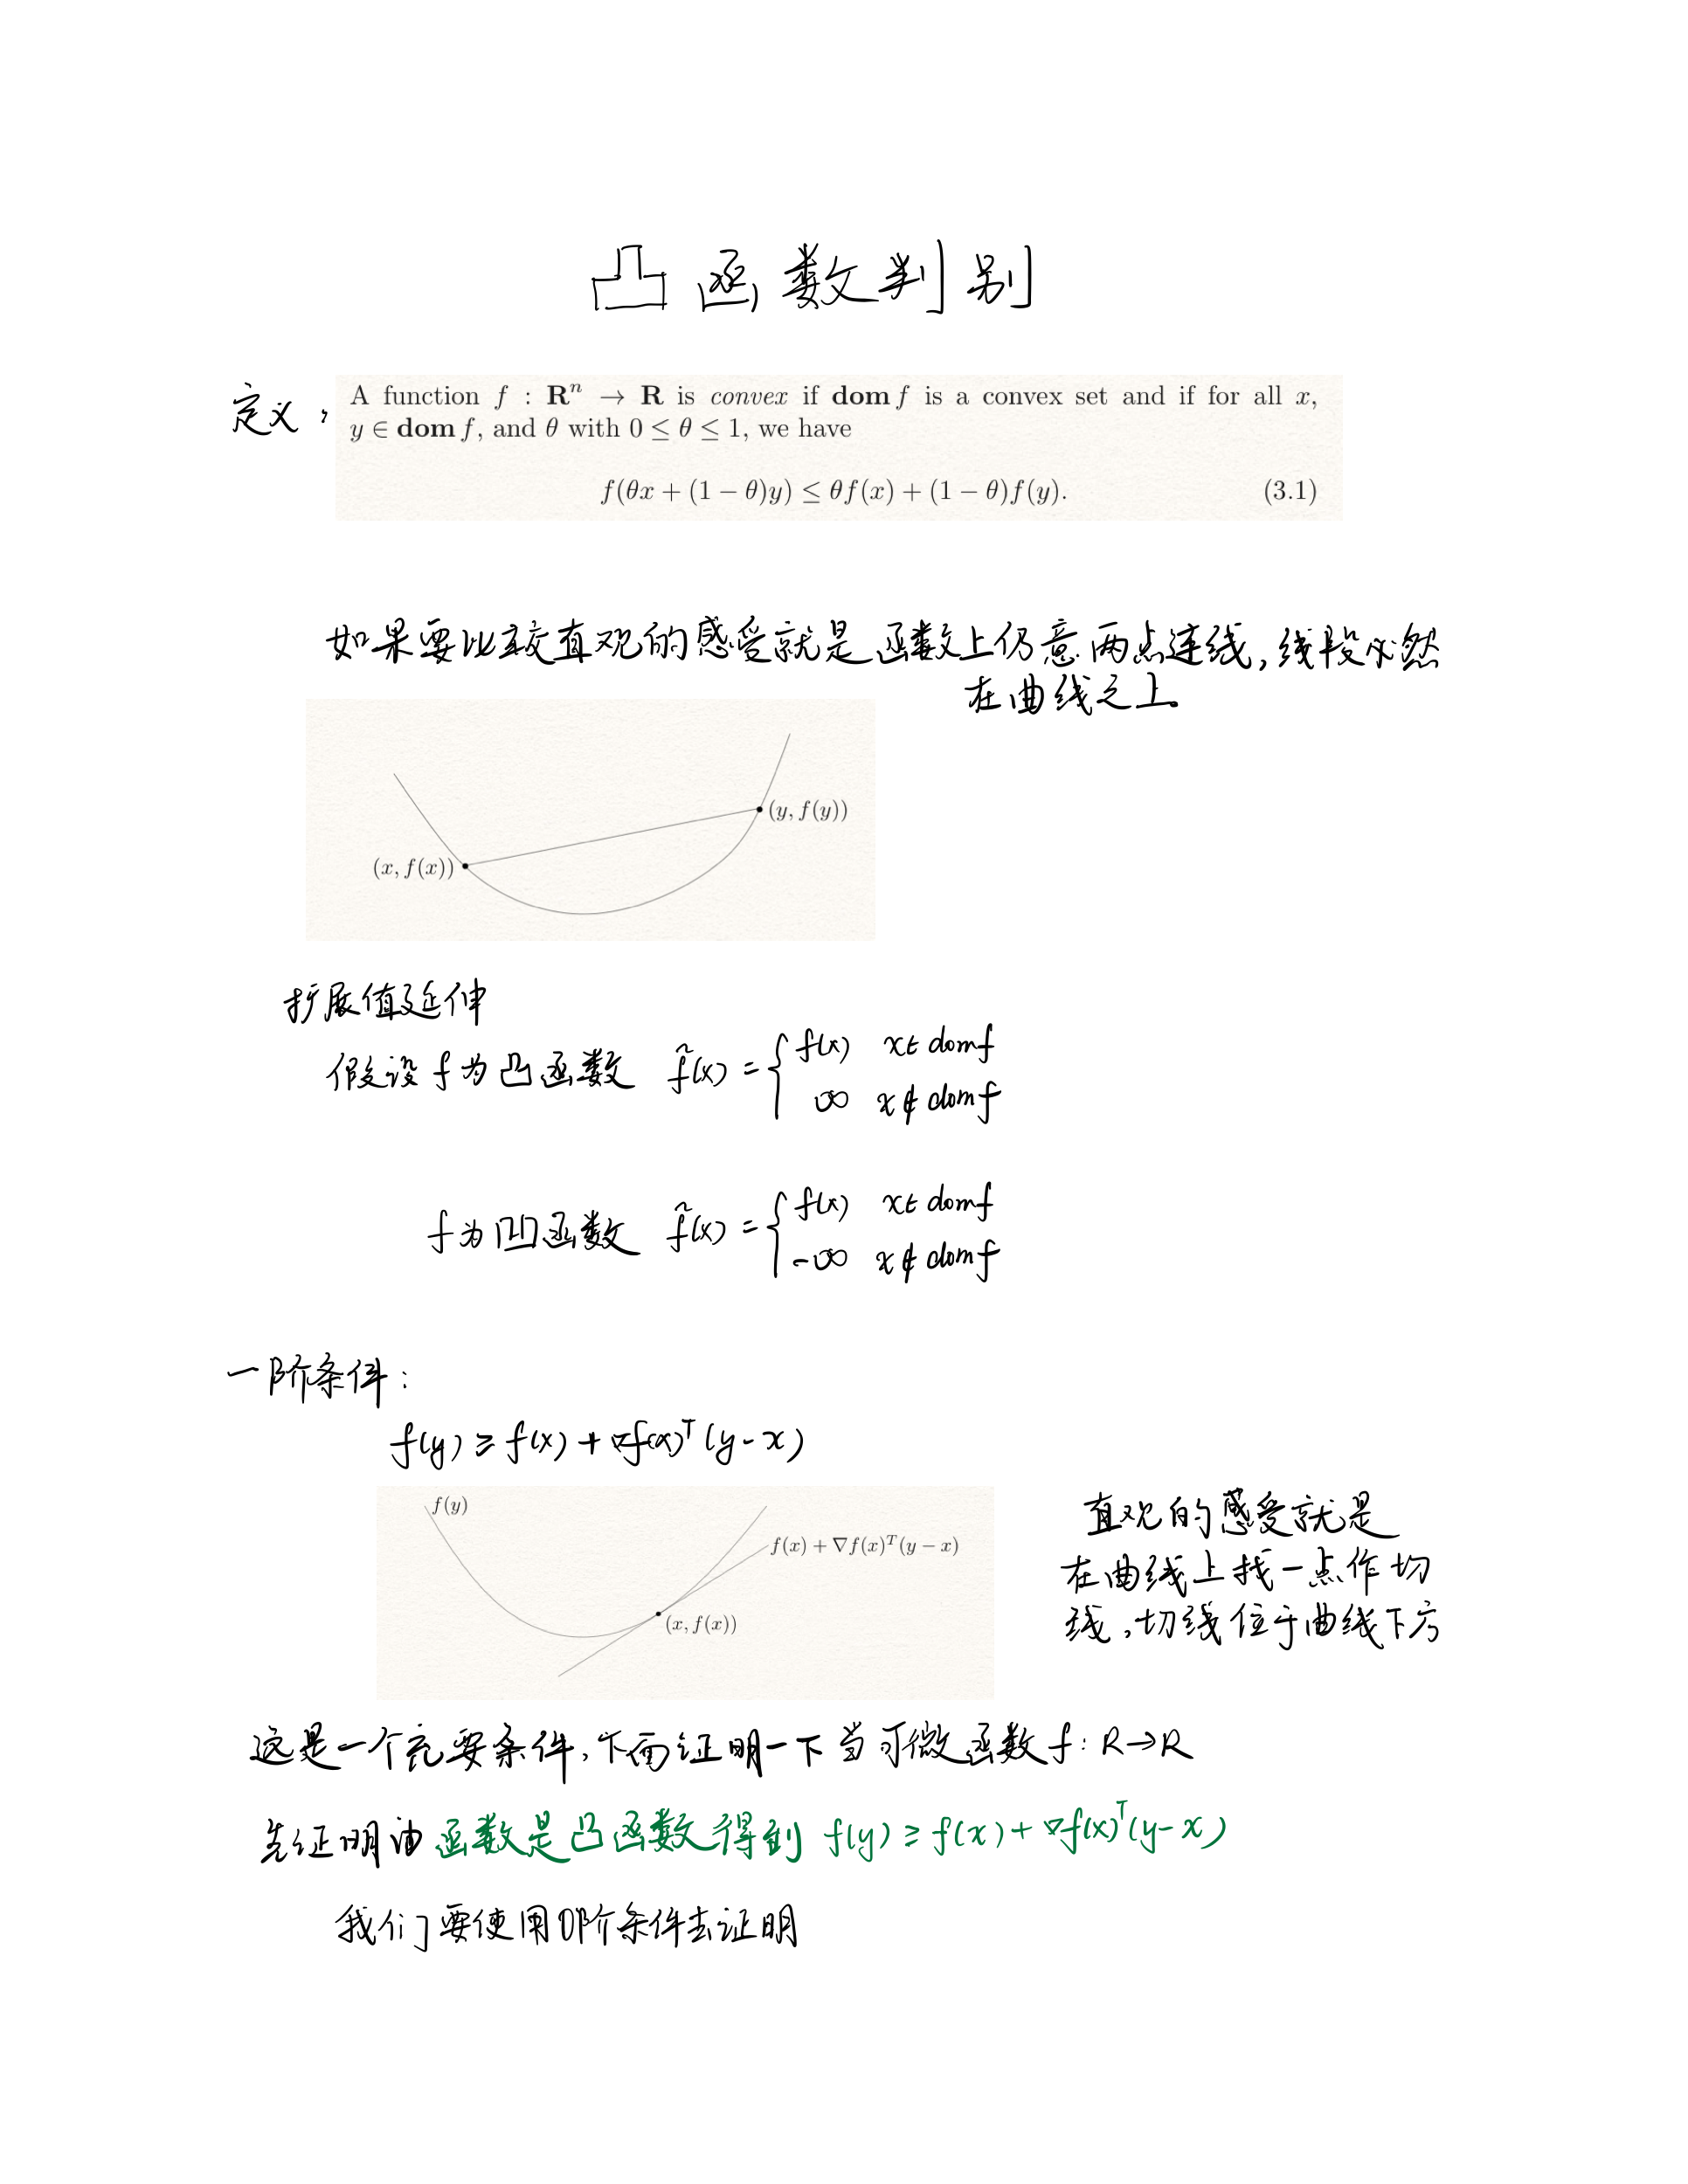 凸函数判别
定义：
A function f : Rⁿ → R is convex if dom f is a convex set and if for all x,
y ∈ dom f, and θ with 0 ≤ θ ≤ 1, we have
f(θx + (1 − θ)y) ≤ θf(x) + (1 − θ)f(y). (3.1)
如果要比较直观的感受就是函数上仍意两点连线,线段必然
在曲线之上。
(y, f(y))
(x, f(x))
扩展值延伸
假设f为凸函数 f̃(x) = { f(x) x∈domf
∞ x∉domf
f为凹函数 f̃(x) = { f(x) x∈domf
-∞ x∉domf
一阶条件:
f(y) ≥ f(x) + ∇f(x)ᵀ(y-x)
f(y)
f(x) + ∇f(x)ᵀ(y − x)
(x, f(x))
直观的感受就是
在曲线上找一点作切
线,切线位于曲线下方
这是一个充要条件,下面证明一下当可微函数f: R→R
先证明由函数是凸函数得到 f(y) ≥ f(x) + ∇f(x)ᵀ(y-x)
我们要使用0阶条件去证明